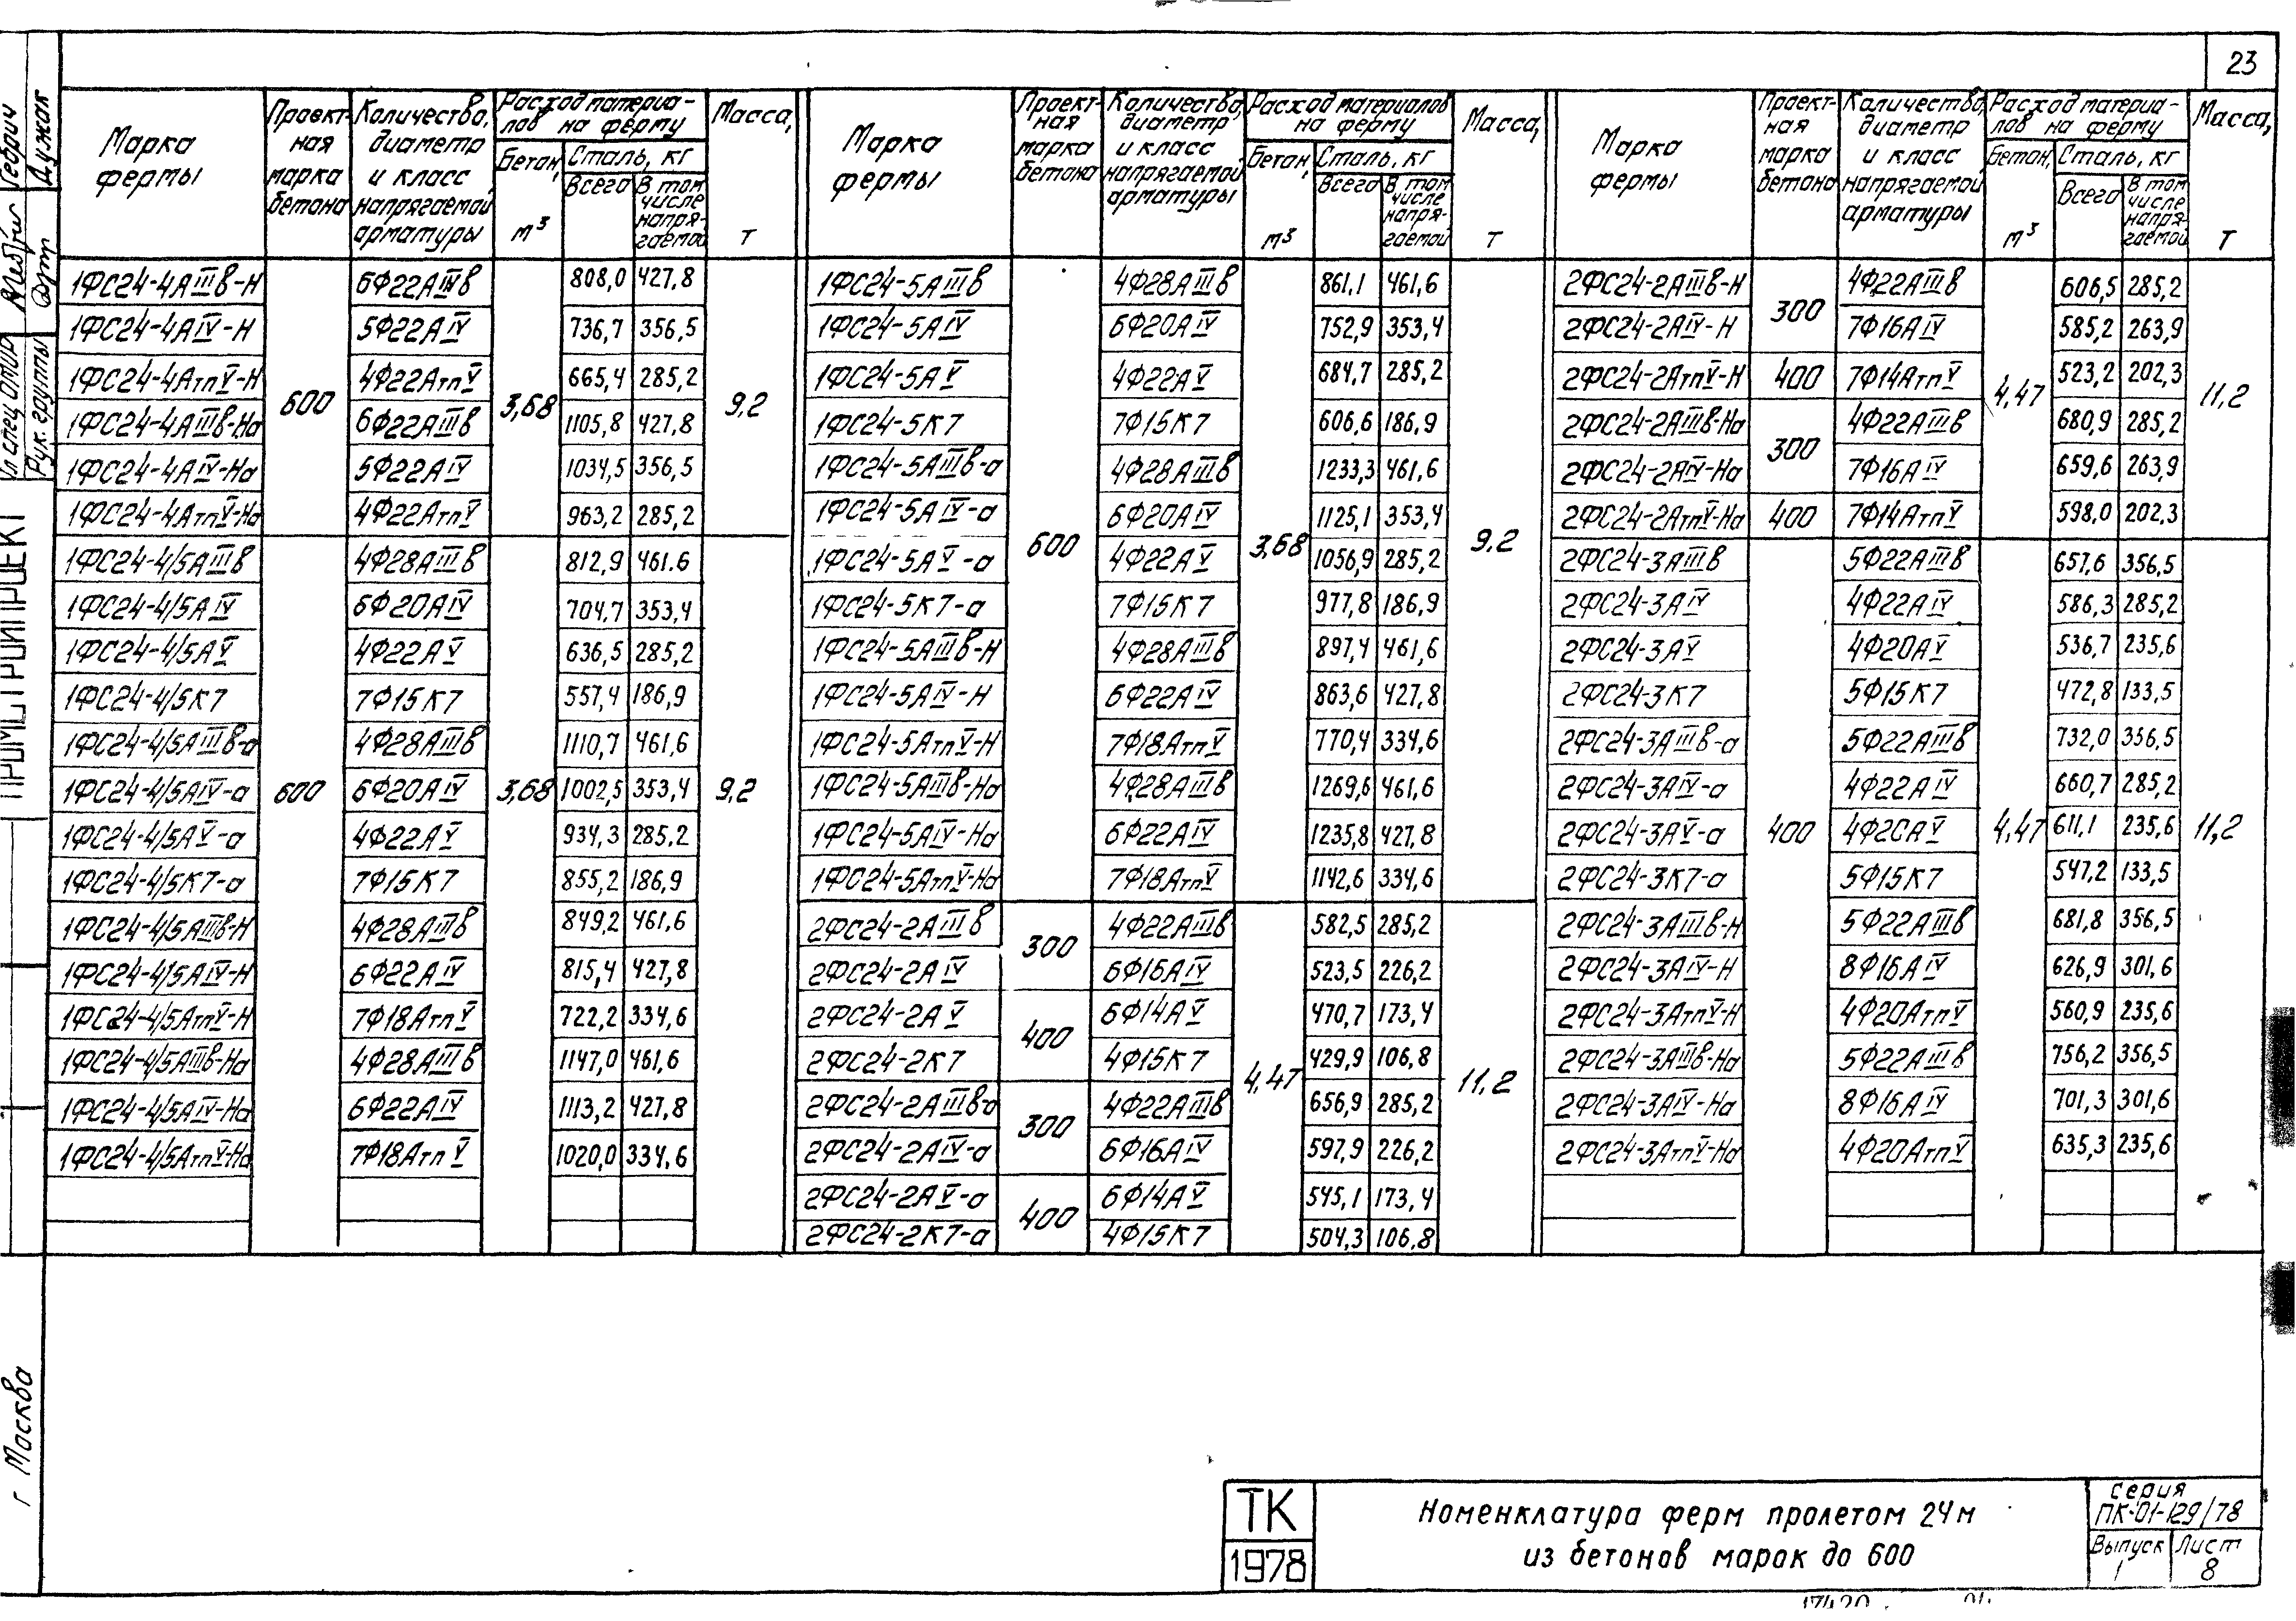 23
Марка фермы | Проект-ная марка бетона | Количество, диаметр и класс напрягаемой арматуры | Расход материа-лов на ферму | Бетон, м³ | Сталь, кг | Всего | В том числе напря-гаемой | Масса, т
1ФС24-4АIIIв-Н | 600 | 6Ф22АIIIв | 3,68 | 808,0 | 427,8 | 9,2
1ФС24-4АIV-Н | 5Ф22АIV | 736,7 | 356,5
1ФС24-4АтпV-Н | 4Ф22АтпV | 665,4 | 285,2
1ФС24-4АIIIв-На | 6Ф22АIIIв | 1105,8 | 427,8
1ФС24-4АIV-На | 5Ф22АIV | 1034,5 | 356,5
1ФС24-4АтпV-На | 4Ф22АтпV | 963,2 | 285,2
1ФС24-4/5АIIIв | 600 | 4Ф28АIIIв | 3,68 | 812,9 | 461.6 | 9,2
1ФС24-4/5АIV | 6Ф20АIV | 704,7 | 353,4
1ФС24-4/5АV | 4Ф22АV | 636,5 | 285,2
1ФС24-4/5К7 | 7Ф15К7 | 557,4 | 186,9
1ФС24-4/5АIIIв-а | 4Ф28АIIIв | 1110,7 | 461,6
1ФС24-4/5АIV-а | 6Ф20АIV | 1002,5 | 353,4
1ФС24-4/5АV-а | 4Ф22АV | 934,3 | 285,2
1ФС24-4/5К7-а | 7Ф15К7 | 855,2 | 186,9
1ФС24-4/5АIIIв-Н | 4Ф28АIIIв | 849,2 | 461,6
1ФС24-4/5АIV-Н | 6Ф22АIV | 815,4 | 427,8
1ФС24-4/5АтпV-Н | 7Ф18АтпV | 722,2 | 334,6
1ФС24-4/5АIIIв-На | 4Ф28АIIIв | 1147,0 | 461,6
1ФС24-4/5АIV-На | 6Ф22АIV | 1113,2 | 427,8
1ФС24-4/5АтпV-На | 7Ф18АтпV | 1020,0 | 334,6
Марка фермы | Проект-ная марка бетона | Количество, диаметр и класс напрягаемой арматуры | Расход материалов на ферму | Бетон, м³ | Сталь, кг | Всего | В том числе напря-гаемой | Масса, т
1ФС24-5АIIIв | 600 | 4Ф28АIIIв | 3,68 | 861,1 | 461,6 | 9,2
1ФС24-5АIV | 6Ф20АIV | 752,9 | 353,4
1ФС24-5АV | 4Ф22АV | 684,7 | 285,2
1ФС24-5К7 | 7Ф15К7 | 606,6 | 186,9
1ФС24-5АIIIв-а | 4Ф28АIIIв | 1233,3 | 461,6
1ФС24-5АIV-а | 6Ф20АIV | 1125,1 | 353,4
1ФС24-5АV-а | 4Ф22АV | 1056,9 | 285,2
1ФС24-5К7-а | 7Ф15К7 | 977,8 | 186,9
1ФС24-5АIIIв-Н | 4Ф28АIIIв | 897,4 | 461,6
1ФС24-5АIV-Н | 6Ф22АIV | 863,6 | 427,8
1ФС24-5АтпV-Н | 7Ф18АтпV | 770,4 | 334,6
1ФС24-5АIIIв-На | 4Ф28АIIIв | 1269,6 | 461,6
1ФС24-5АIV-На | 6Ф22АIV | 1235,8 | 427,8
1ФС24-5АтпV-На | 7Ф18АтпV | 1142,6 | 334,6
2ФС24-2АIIIв | 300 | 4Ф22АIIIв | 4,47 | 582,5 | 285,2 | 11,2
2ФС24-2АIV | 6Ф16АIV | 523,5 | 226,2
2ФС24-2АV | 400 | 6Ф14АV | 470,7 | 173,4
2ФС24-2К7 | 4Ф15К7 | 429,9 | 106,8
2ФС24-2АIIIв-а | 300 | 4Ф22АIIIв | 656,9 | 285,2
2ФС24-2АIV-а | 6Ф16АIV | 597,9 | 226,2
2ФС24-2АV-а | 400 | 6Ф14АV | 545,1 | 173,4
2ФС24-2К7-а | 4Ф15К7 | 504,3 | 106,8
Марка фермы | Проект-ная марка бетона | Количество, диаметр и класс напрягаемой арматуры | Расход материа-лов на ферму | Бетон, м³ | Сталь, кг | Всего | В том числе напря-гаемой | Масса, т
2ФС24-2АIIIв-Н | 300 | 4Ф22АIIIв | 4,47 | 606,5 | 285,2 | 11,2
2ФС24-2АIV-Н | 7Ф16АIV | 585,2 | 263,9
2ФС24-2АтпV-Н | 400 | 7Ф14АтпV | 523,2 | 202,3
2ФС24-2АIIIв-На | 300 | 4Ф22АIIIв | 680,9 | 285,2
2ФС24-2АIV-На | 7Ф16АIV | 659,6 | 263,9
2ФС24-2АтпV-На | 400 | 7Ф14АтпV | 598,0 | 202,3
2ФС24-3АIIIв | 400 | 5Ф22АIIIв | 4,47 | 657,6 | 356,5 | 11,2
2ФС24-3АIV | 4Ф22АIV | 586,3 | 285,2
2ФС24-3АV | 4Ф20АV | 536,7 | 235,6
2ФС24-3К7 | 5Ф15К7 | 472,8 | 133,5
2ФС24-3АIIIв-а | 5Ф22АIIIв | 732,0 | 356,5
2ФС24-3АIV-а | 4Ф22АIV | 660,7 | 285,2
2ФС24-3АV-а | 4Ф20АV | 611,1 | 235,6
2ФС24-3К7-а | 5Ф15К7 | 547,2 | 133,5
2ФС24-3АIIIв-Н | 5Ф22АIIIв | 681,8 | 356,5
2ФС24-3АIV-Н | 8Ф16АIV | 626,9 | 301,6
2ФС24-3АтпV-Н | 4Ф20АтпV | 560,9 | 235,6
2ФС24-3АIIIв-На | 5Ф22АIIIв | 756,2 | 356,5
2ФС24-3АIV-На | 8Ф16АIV | 701,3 | 301,6
2ФС24-3АтпV-На | 4Ф20АтпV | 635,3 | 235,6
Рук. группы
Дужак
г Москва
ТК
1978
Номенклатура ферм пролетом 24м
из бетонов марок до 600
серия
ПК-01-129/78
Выпуск 1
Лист 8